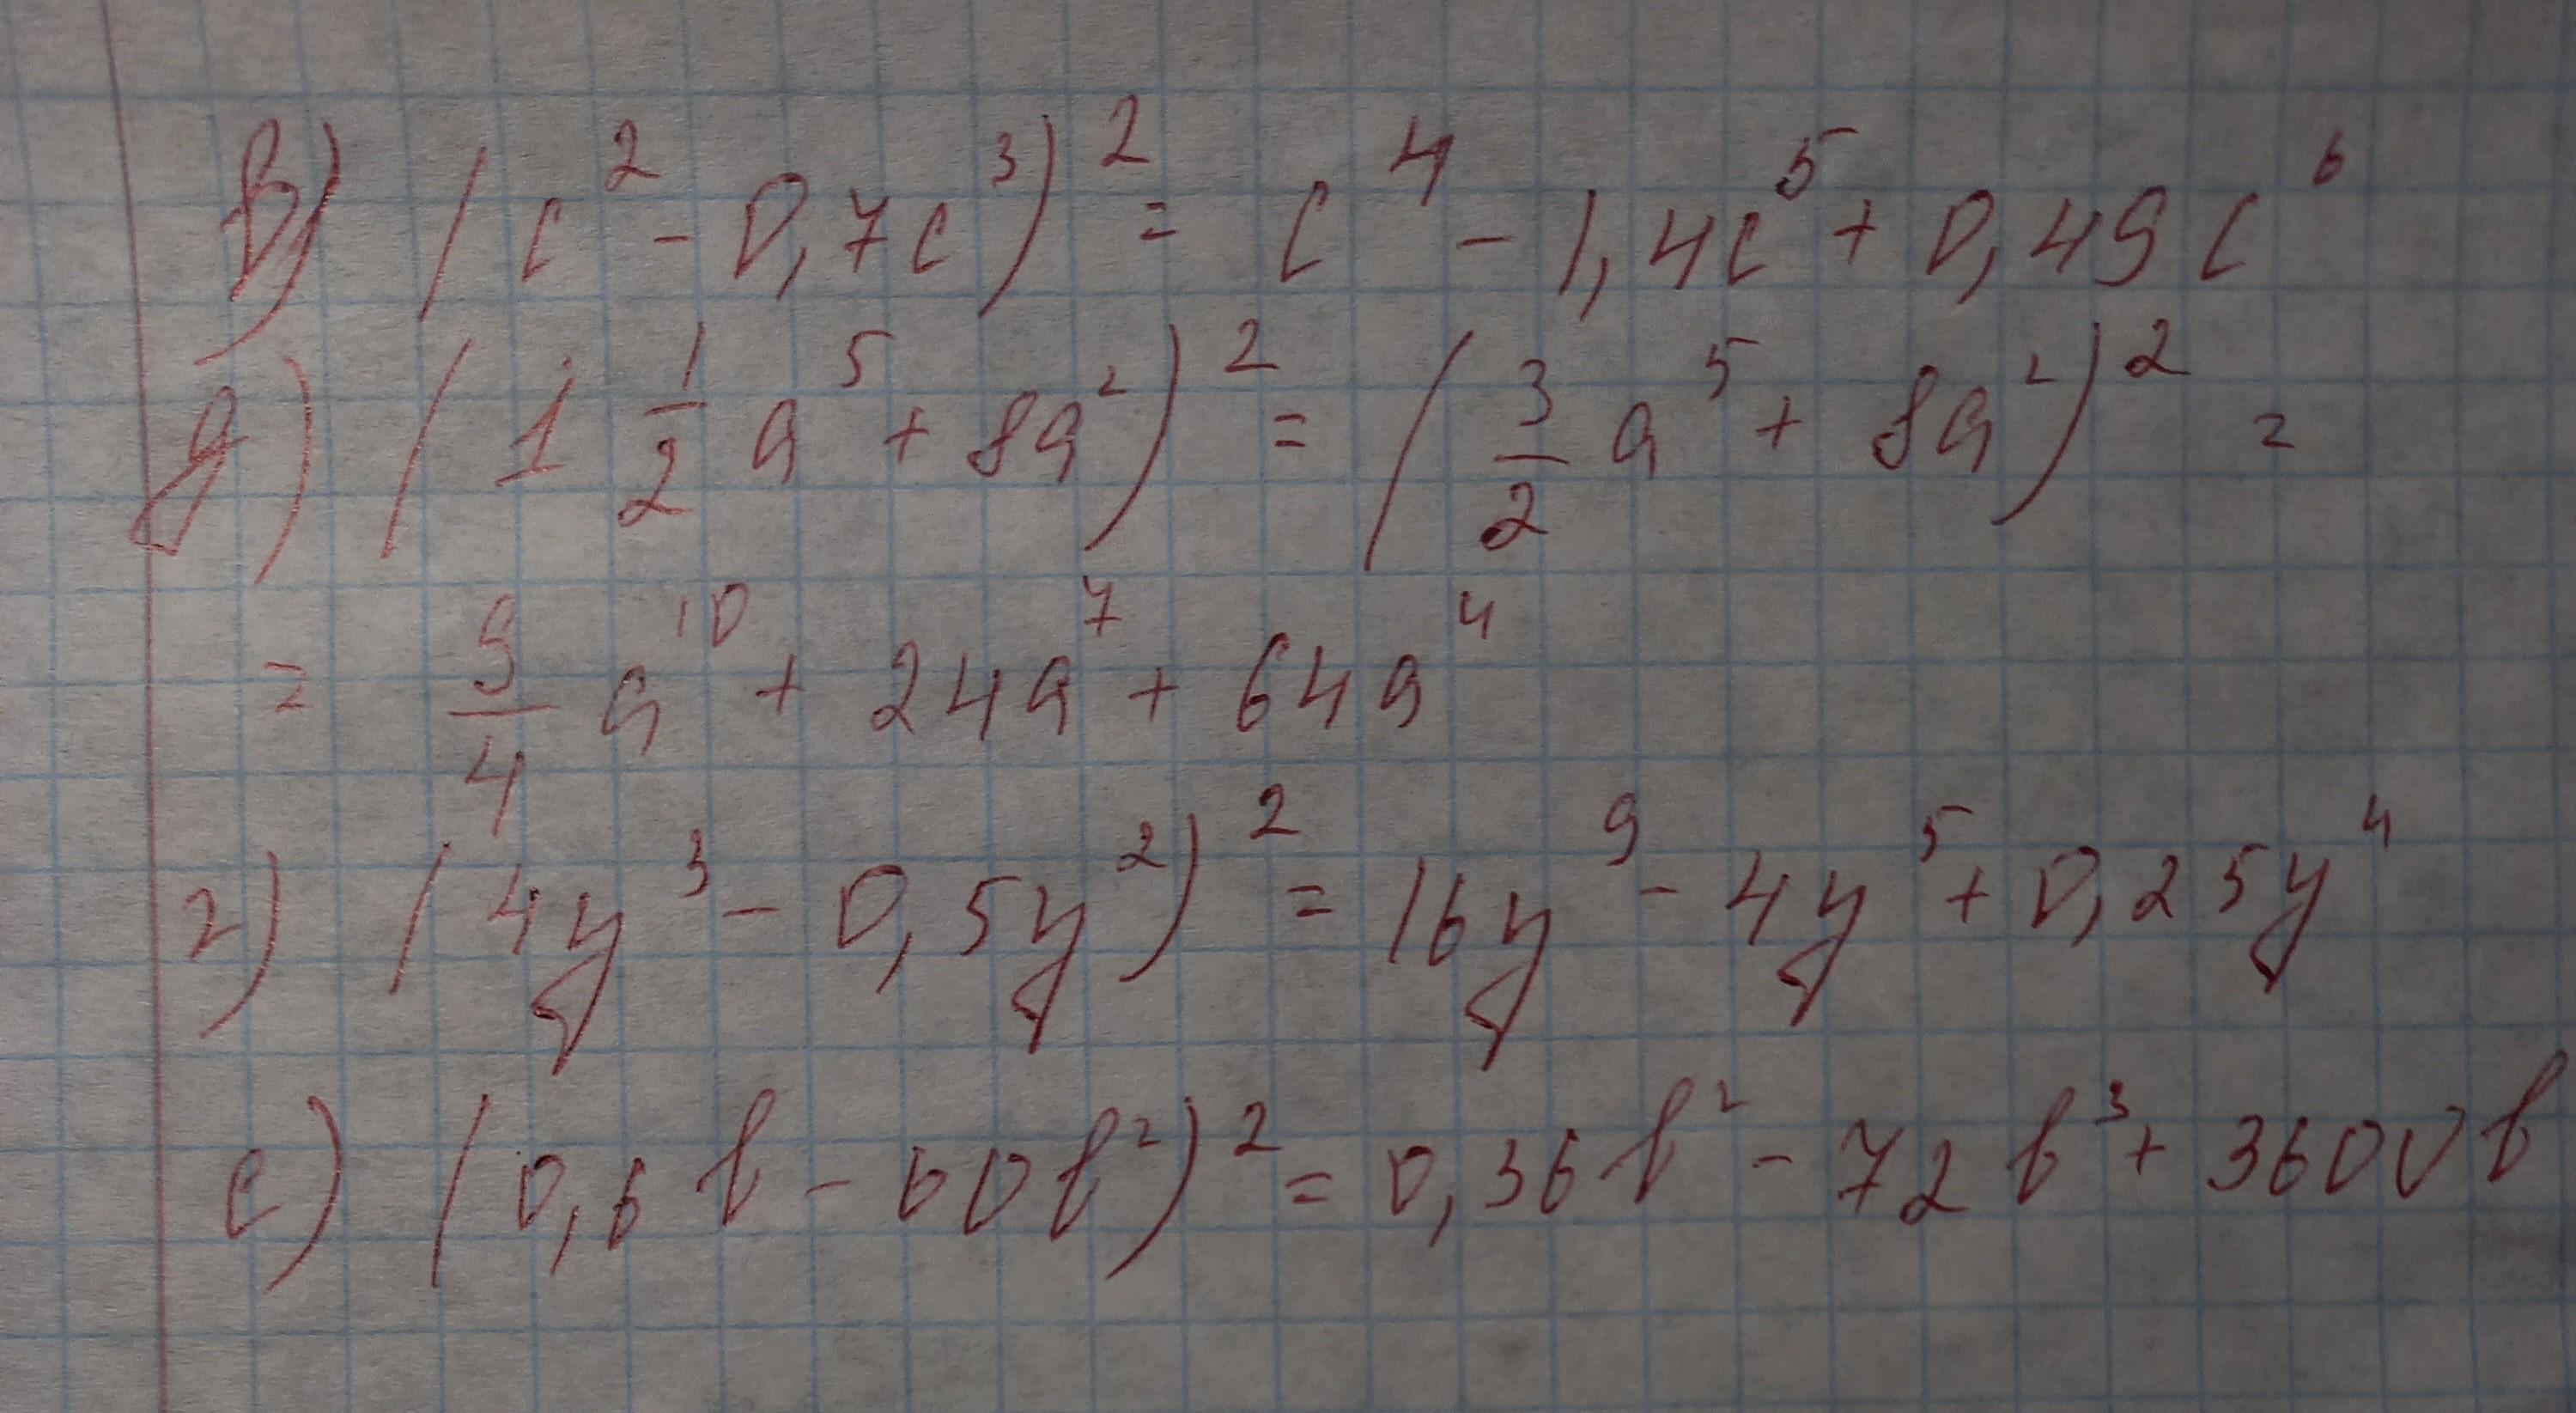 в) (c² - 0,7c³)² = c⁴ - 1,4c⁵ + 0,49c⁶
д) (1 1/2 a⁵ + 8a²)² = (3/2 a⁵ + 8a²)² =
= 9/4 a¹⁰ + 24a⁷ + 64a⁴
г) (4y³ - 0,5y²)² = 16y⁹ - 4y⁵ + 0,25y⁴
е) (0,6b - 60b²)² = 0,36b² - 72b³ + 3600b